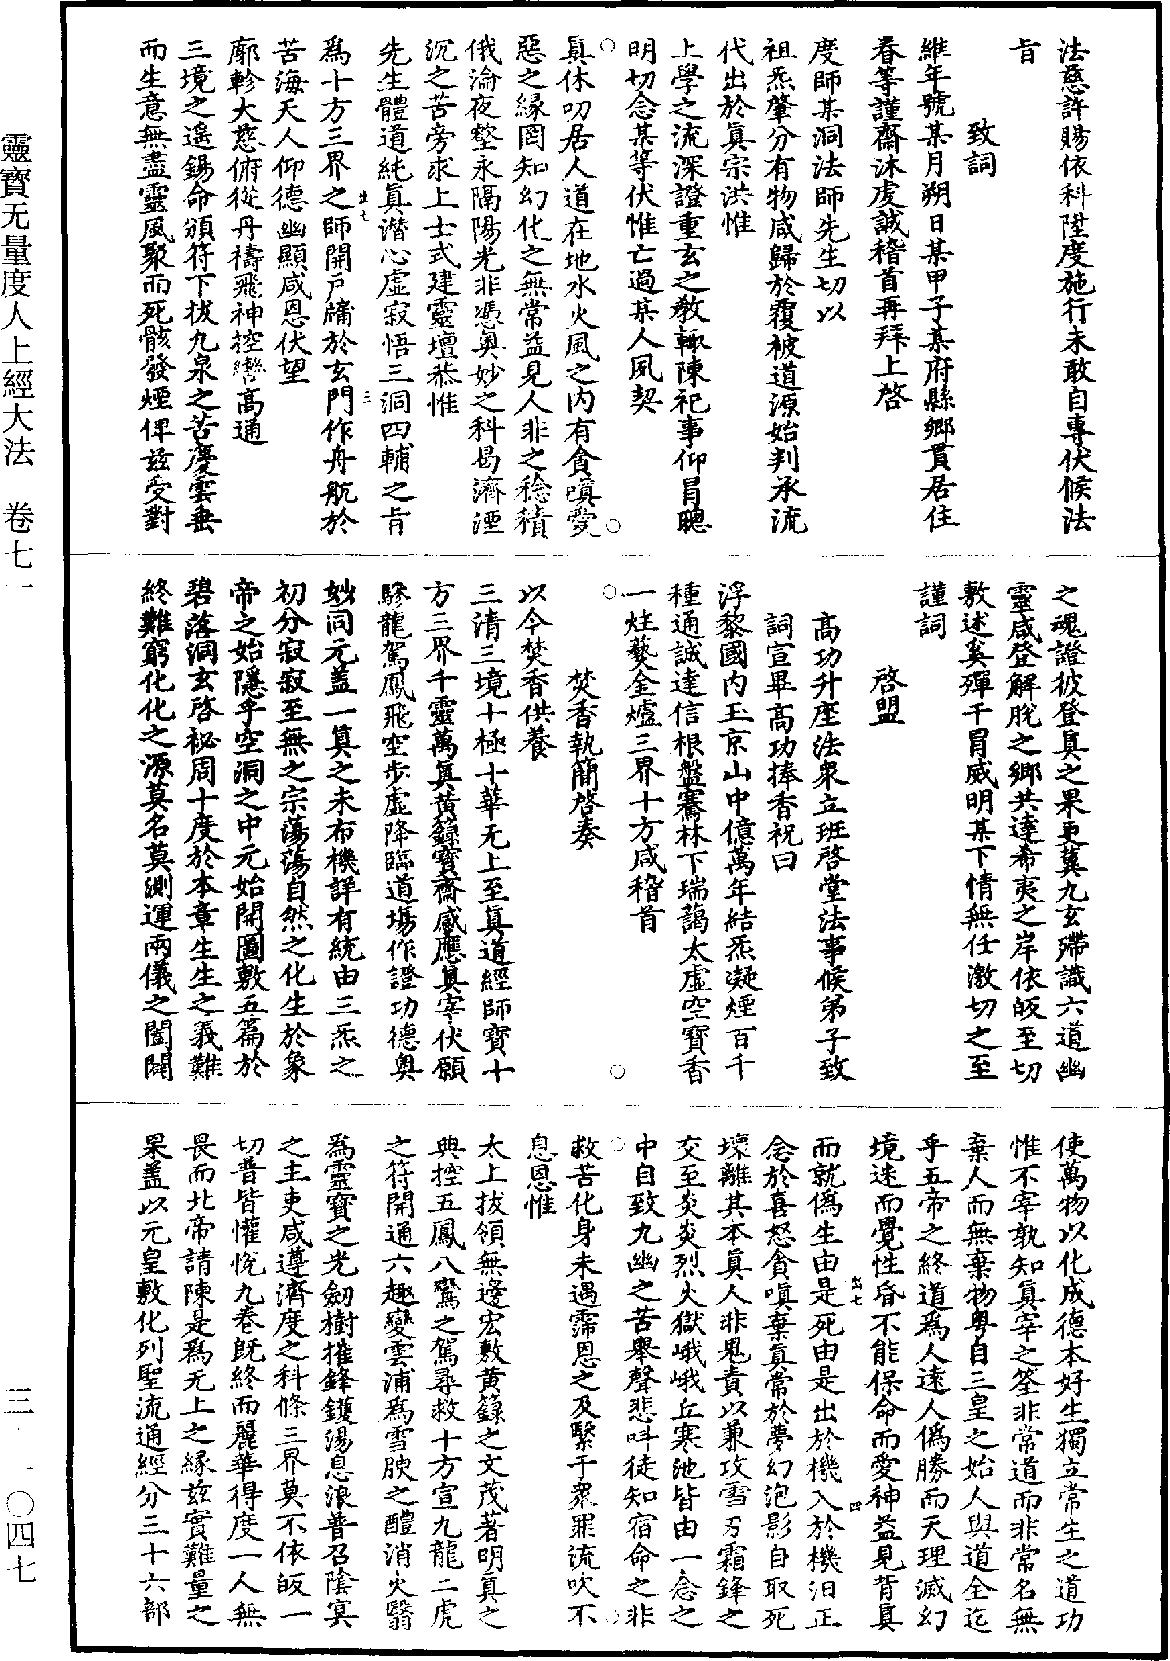 法慈許賜依科陞度施行未敢自專伏候法
旨
致詞
維年號某月朔日某甲子某府縣鄉貫居住
春等謹齋沐虔誠稽首再拜上啓
度師某洞法師先生切以
祖炁肇分有物咸歸於覆被道源始判承流
代出於眞宗洪惟
上學之流深證重玄之教輙陳祀事仰冒聰
明切念某等伏惟亡過某人夙契
眞休叨居人道在地水火風之内有貪嗔愛
惡之緣罔知幻化之無常益見人非之稔積
俄淪夜壑永隔陽光非憑奥妙之科曷濟湮
沉之苦旁求上士式建靈壇恭惟
先生體道純眞潛心虛寂悟三洞四輔之旨
爲十方三界之師開户牖於玄門作舟航於
苦海天人仰德幽顯咸恩伏望
廓軫大慈俯從丹禱飛神控轡高通
三境之遥錫命頒符下拔九泉之苦慶雲垂
而生意無盡靈風聚而死骸發煙俾兹受對
之魂證彼登眞之果更冀九玄滯識六道幽
靈咸登解脫之鄉共達希夷之岸依皈至切
敷述奚殫干冒威明某下情無任激切之至
謹詞
啓盟
高功升座法衆立班啓堂法事候弟子致
詞宣畢高功捧香祝曰
浮黎國内玉京山中億萬年結炁凝煙百千
種通誠達信根盤騫林下瑞藹太虛空寶香
一炷爇金爐三界十方咸稽首
焚香執簡啓奏
以今焚香供養
三清三境十極十華无上至眞道經師寶十
方三界千靈萬眞黄籙寶齋感應眞宰伏願
驂龍駕鳳飛空步虛降臨道場作證功德奥
妙同元蓋一眞之未布機詳有統由三炁之
初分寂寂至無之宗蕩蕩自然之化生於象
帝之始隱乎空洞之中元始開圖敷五篇於
碧落洞玄啓祕周十度於本章生生之義難
終難窮化化之源莫名莫測運兩儀之闔闢
使萬物以化成德本好生獨立常生之道功
惟不宰孰知眞宰之筌非常道而非常名無
棄人而無棄物粤自三皇之始人與道全迄
乎五帝之終道爲人遠人僞勝而天理滅幻
境迷而覺性昏不能保命而愛神益見背眞
而就僞生由是死由是出於機入於機汩正
念於喜怒貪嗔棄眞常於夢幻泡影自取死
壞離其本眞人非鬼責以兼攻雪刃霜鋒之
交至炎炎烈火獄峨峨丘寒池皆由一念之
中自致九幽之苦舉聲悲呌徒知宿命之非
救苦化身未遇霈恩之及繫于衆罪流吹不
息恩惟
太上拔領無邊宏敷黄籙之文茂著明眞之
典控五鳳八鸞之駕尋救十方宣九龍二虎
之符開通六趣變雲浦爲雪腴之醴消火翳
爲靈寶之光劒樹摧鋒鑊湯息浪普召陰冥
之主吏咸遵濟度之科條三界莫不依皈一
切普皆懽悦九卷既終而麗華得度一人無
畏而北帝請陳是爲无上之緣兹實難量之
果蓋以元皇敷化列聖流通經分三十六部
靈寶无量度人上經大法　卷七一
三一〇四七